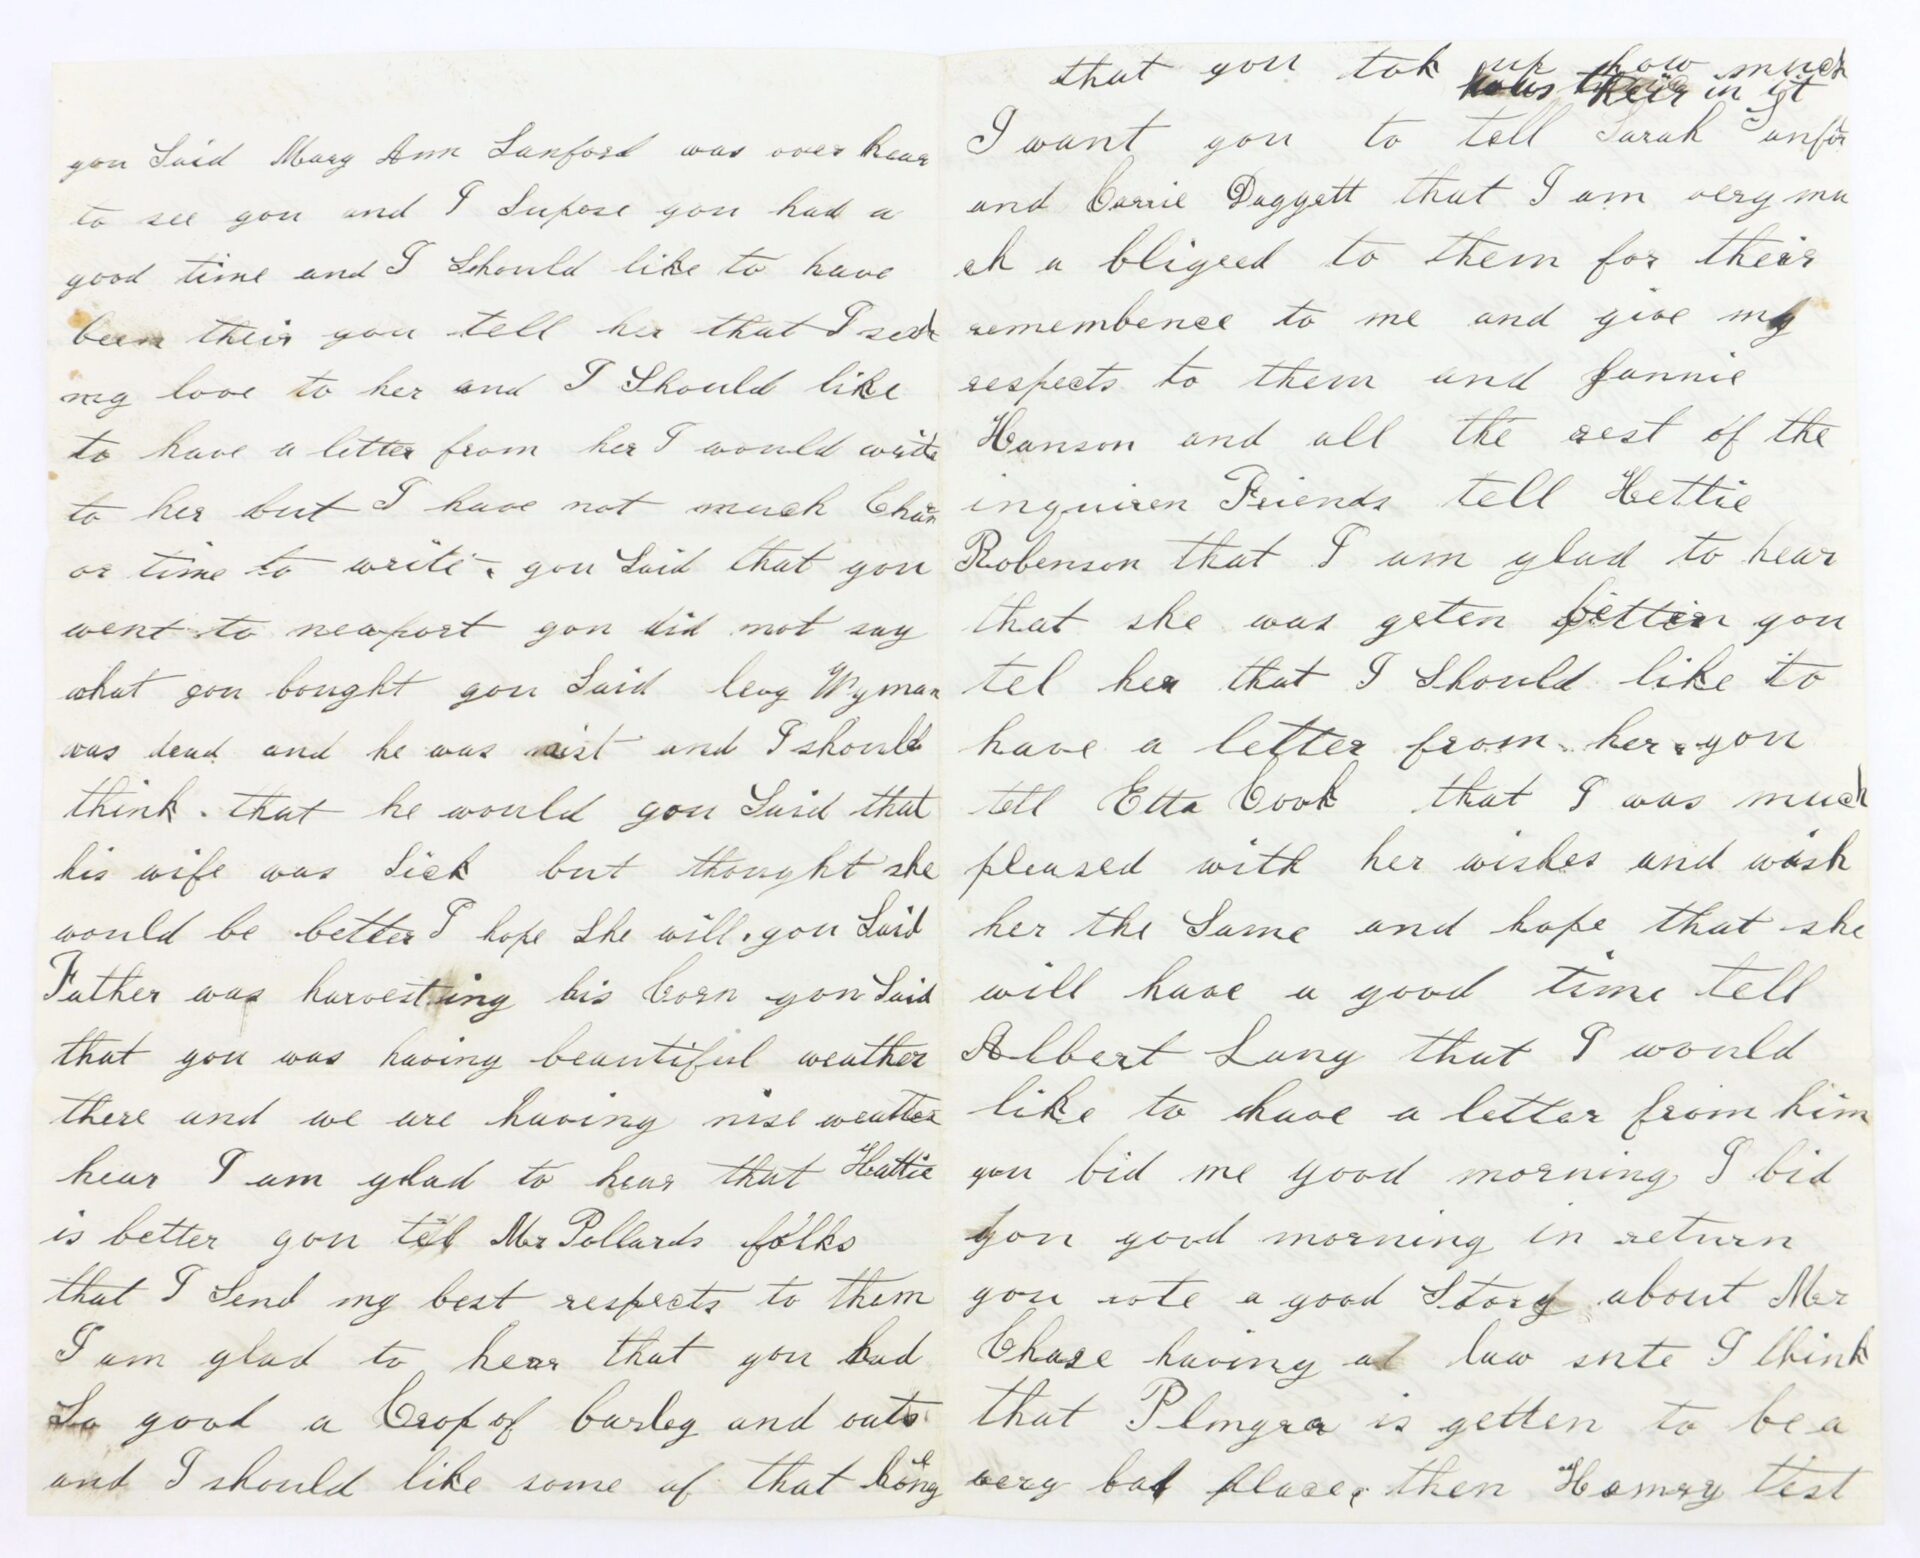 you Said Mary Ann Sanford was over hear
to see you and I Supose you had a
good time and I Should like to have
been their you tell her that I send
my love to her and I Should like
to have a letter from her I would write
to her but I have not much Chan
or time to write. you Said that you
went to newport you did not say
what you bought you Said levy Wyman
was dead and he was mist and I should
think. that he would you Said that
his wife was Sick but thought she
would be better I hope She will. you Said
Father was harvesting his Corn you Said
that you was having beautiful weather
there and we are having nise weather
hear I am glad to hear that Hattie
is better you tel Mr Pollards folks
that I Send my best respects to them
I am glad to hear that you had
So good a Crop of barley and oats
and I should like some of that hony
that you tok up how much
was their in it
I want you to tell Sarah Sanfor
and Carrie Daggett that I am very mu
ch a bligeed to them for their
remembence to me and give my
respects to them and Fannie
Hanson and all the rest of the
inquiren Friends tell Hettie
Robenson that I am glad to hear
that she was geten better you
tel her that I Should like to
have a letter from her. you
tell Etta Cook that I was much
pleased with her wishes and wish
her the Same and hope that she
will have a good time tell
Albert Lang that I would
like to have a letter from him
you bid me good morning I bid
you good morning in return
you rote a good Story about Mr
Chase having a law sute I think
that Plmyra is getten to be a
very bad place. then Hamry tist